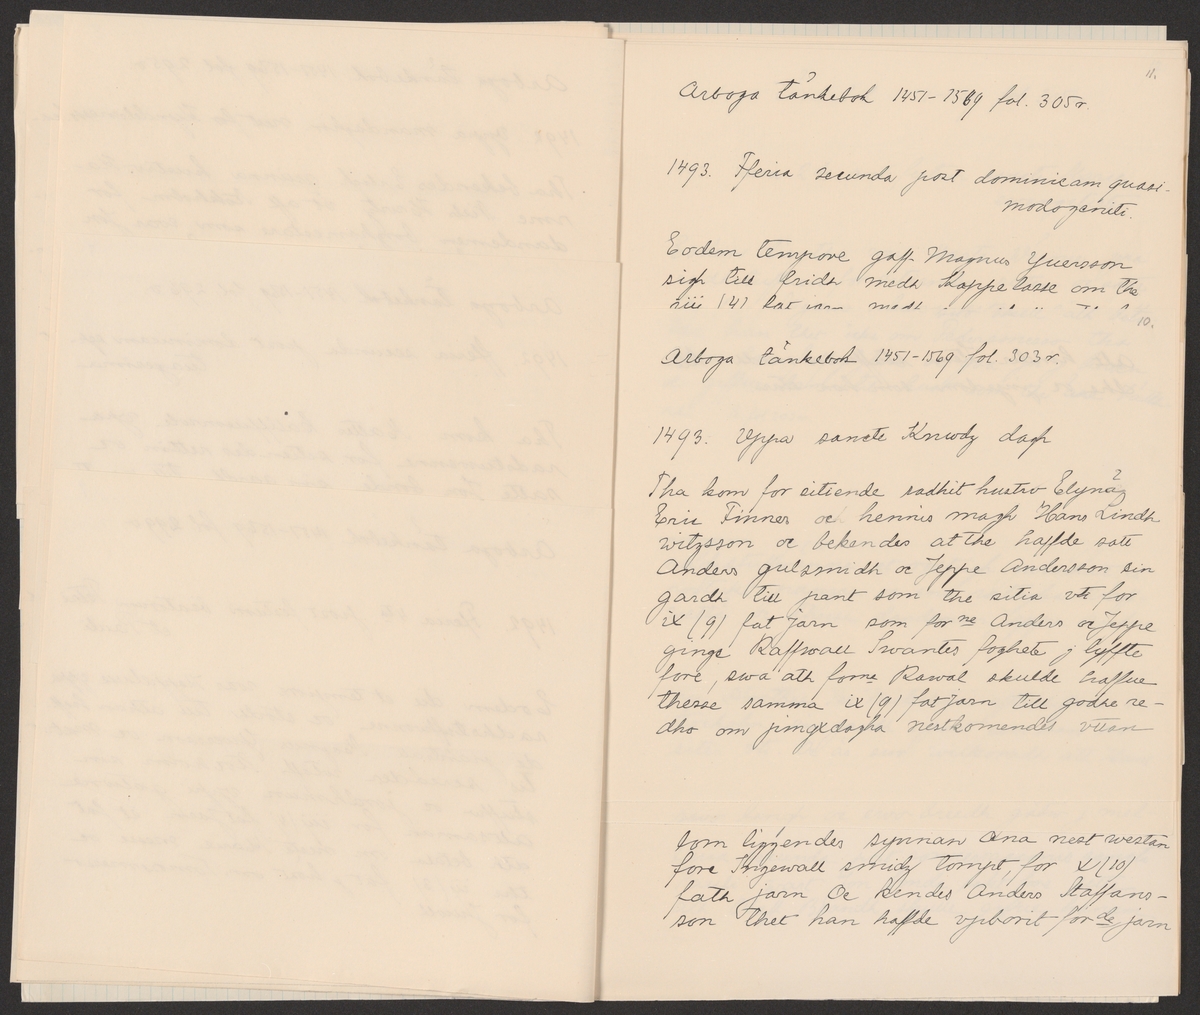 11.
Arboga tänkebok 1451-1569 fol. 305r.
1493. Fferia secunda post dominicam quasi-
modogeniti.
Eodem tempore gaff Magnus Yuersson
sigh till fridh medh Kappe lasse om the
iiii (4) fat iern medh
10.
Arboga tänkebok 1451-1569 fol. 303r.
1493. Vppa sancte Knwdz dagh
Tha kom for sitiende radhit hustro Elynäz
Eric Finnes oc hennis magh Hans Lindh
witzsson oc bekendes at the haffde satt
Anders gulsmidh oc Jeppe Andersson sin
gardh till pant som the sitia vti for
ix (9) fat jarn som forne Anders oc Jeppe
ginge Raffwall Swantes foghete j lyffte
fore, swa ath forne Rawal skulde haffue
thesse samma ix (9) fat jarn till godhe re-
dho om pingxdagha nestkomendes vtan
som liggendes synnan ana nest westan
fore Ingewall smidz tompt, for x (10)
fath jarn Oc kendes Anders Staffans-
son thet han haffde vpborit forde jarn